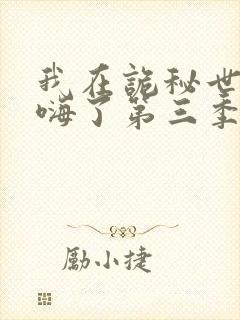 我在詭秘世
嗨了第三季
勵小捷